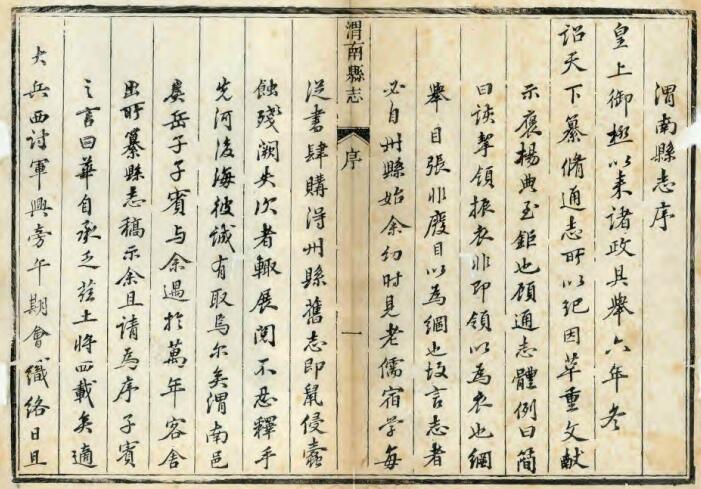 渭南縣志序
皇上御極以来諸政具舉六年冬
詔天下纂脩通志所以紀因革重文獻
示褒揚典至鉅也顧通志體例曰簡
曰該挈領振衣非即領以為衣也綱
舉目張非廢目以為綱也故言志者
必自州縣始余幼时見老儒宿学每
渭南縣志
序
一
從書肆購得州縣舊志即鼠侵蠹
蝕殘闕失次者輒展閱不忍釋手
先河後海彼誠有取焉尔矣渭南邑
矦岳子子賓与余遇於萬年客舍
出所纂縣志稿示余且請為序子賓
之言曰華自承乏茲土將四載矣適
大兵西討軍興旁午期會織絡日且